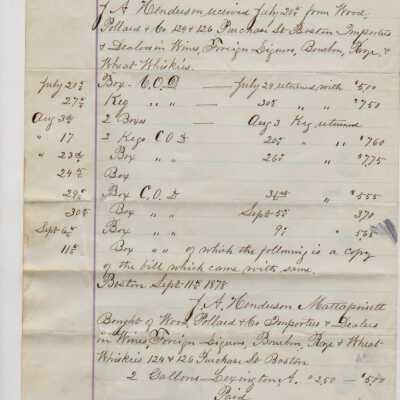 J. A. Henderson received July 20th from Wood,
Pollard & Co 124 & 126 Purchase St Boston Importers
& Dealers in Wines, Foreign Liquors, Bourbon, Rye, &
Wheat Whiskies.
July 20th Box - C.O.D — July 24 returned with $5.00
27th Keg " " — 30th " " $7.50
Aug 3rd 2 Boxes — Aug 3 Keg returned
" 17 2 Kegs C.O.D 20th " " $7.60
" 23rd Box " " 26th " $7.75
24th Box
29th Box C.O.D " $5.55
30th Box " " Sept 5th 3.70
Sept 6th Box " " 9th " 5.55
11th Box " " of which the following is a copy
of the bill which came with same.
Boston Sept 11th 1878
J. A. Henderson Mattapoisett
Bought of Wood, Pollard & Co Importers & Dealers
in Wines, Foreign Liquors, Bourbon, Rye & Wheat
Whiskies 124 & 126 Purchase St Boston
2 Gallons Lexington A. $2.50 — $5.00
Paid